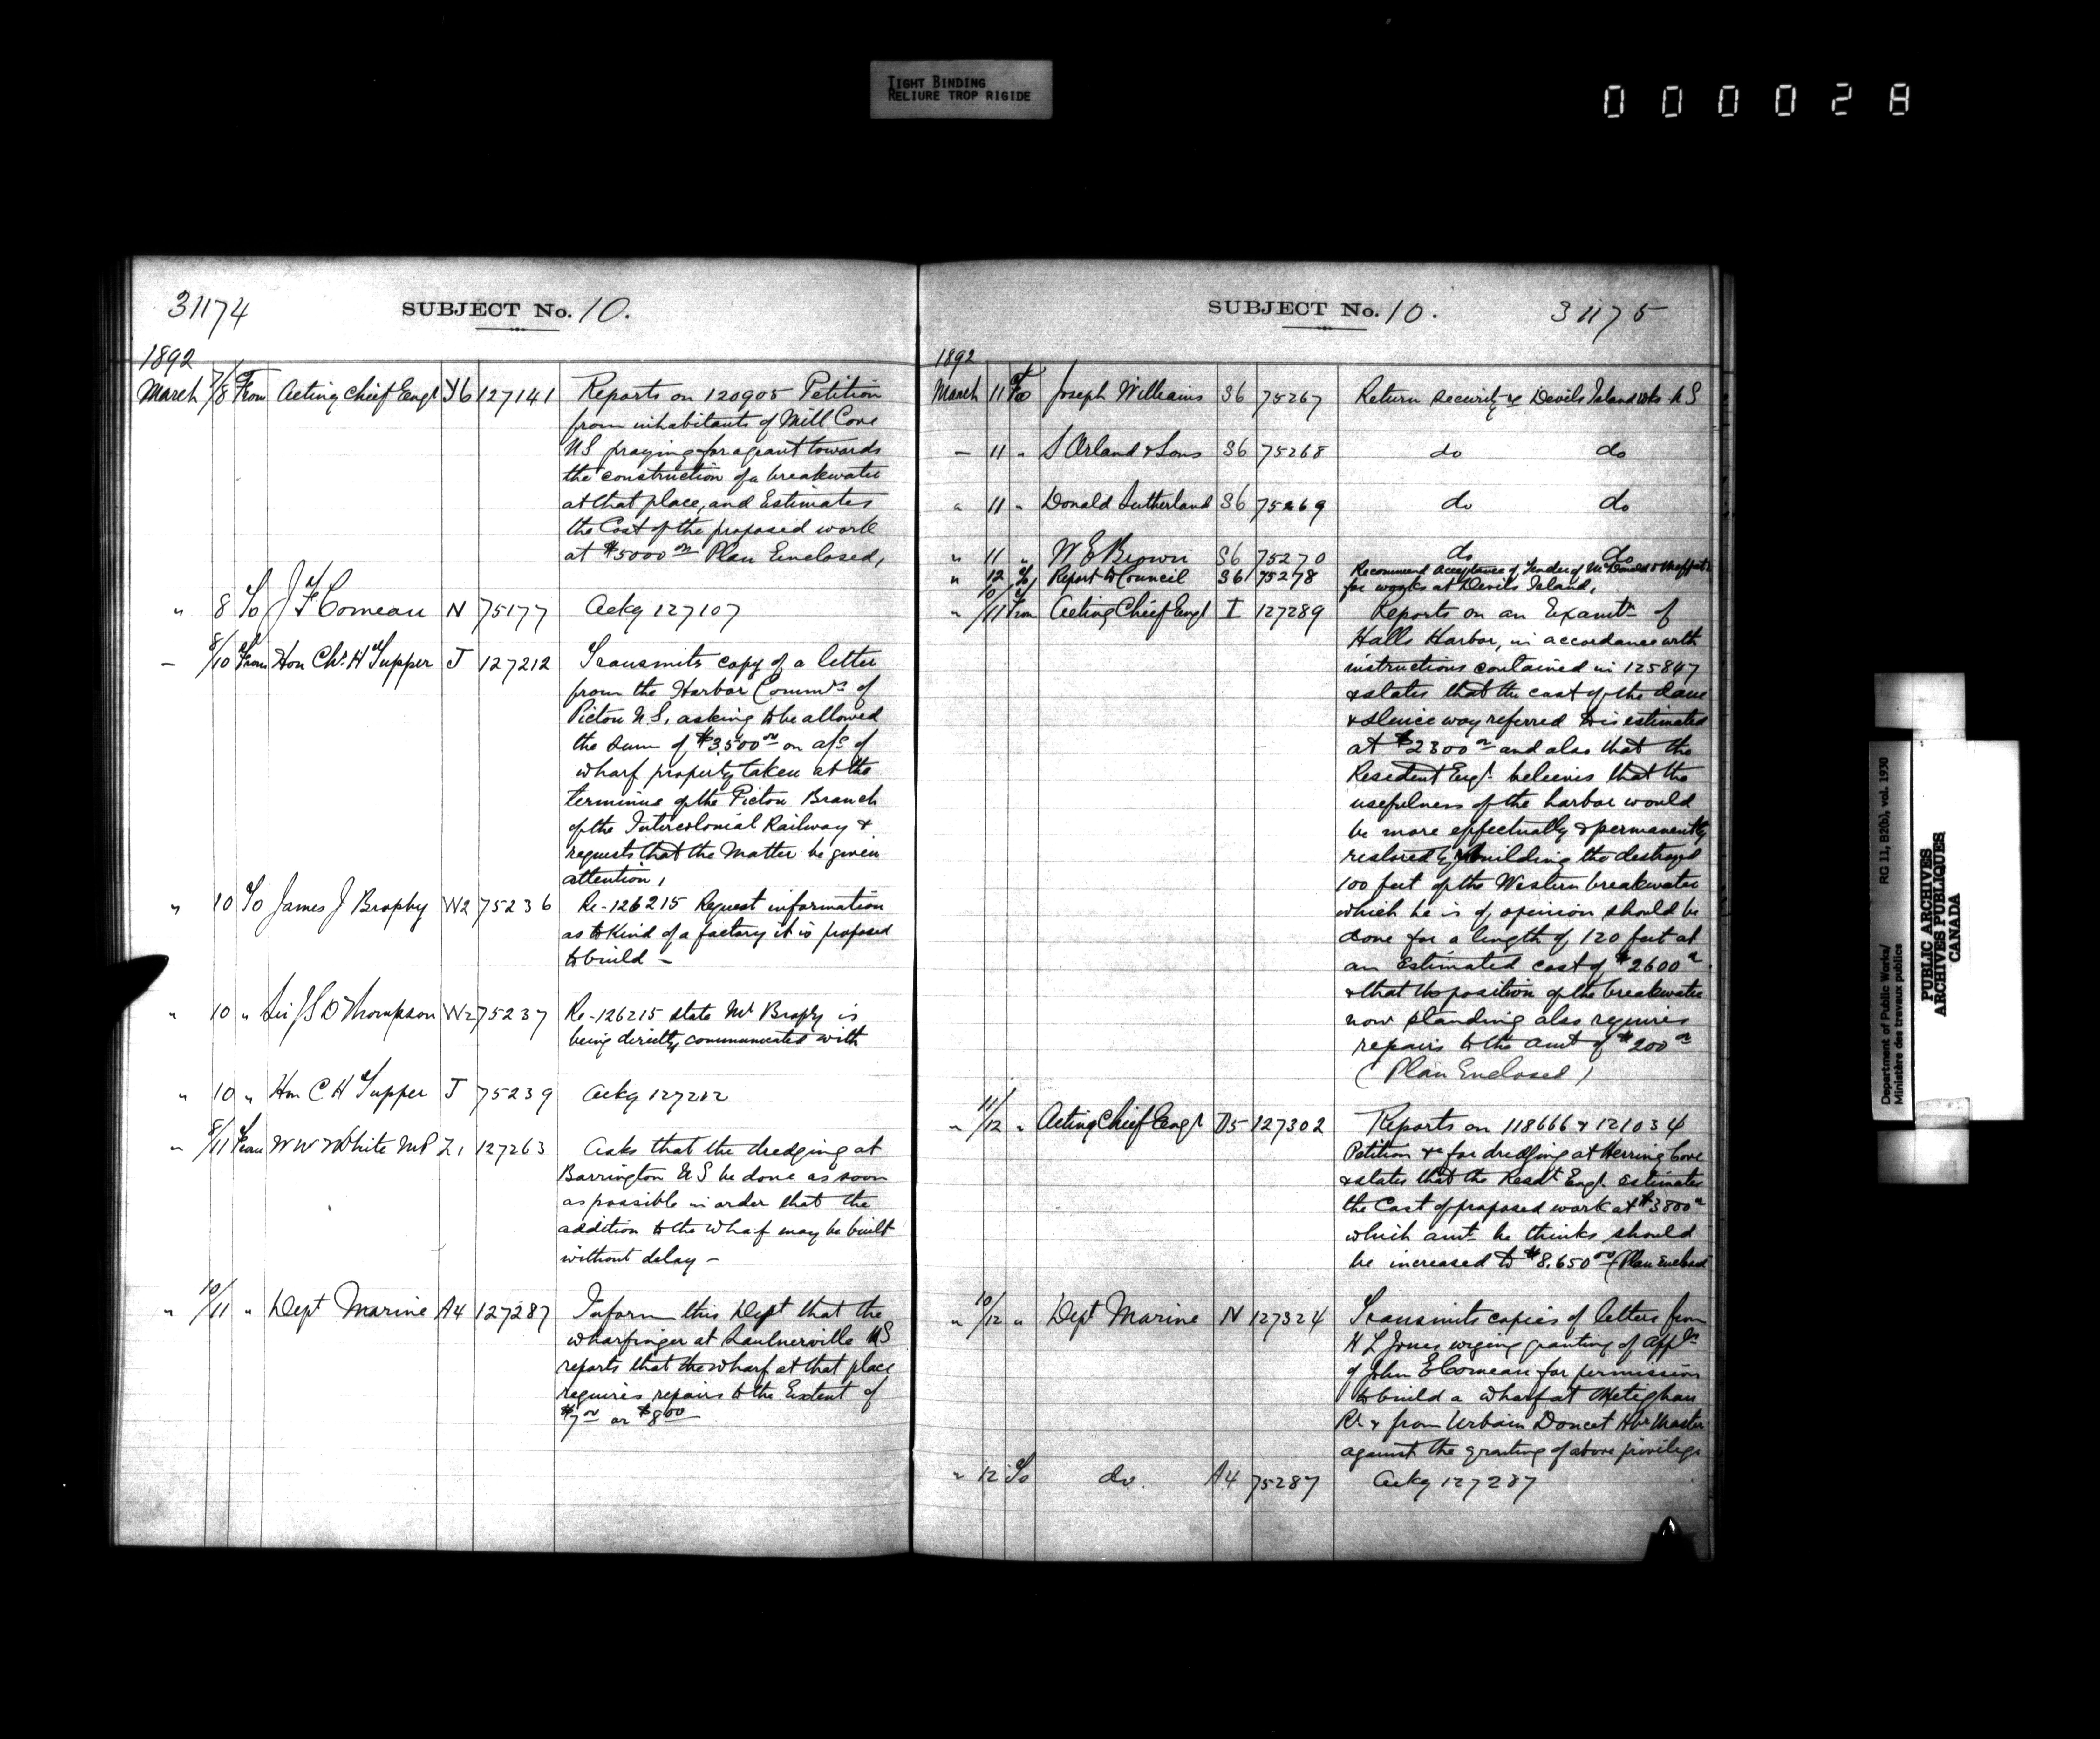 TIGHT BINDING
RELIURE TROP RIGIDE
000028
31174
SUBJECT No. 10.
1892
March 7/8 From Acting Chief Engr Y6 127141 Reports on 120905 Petition
from inhabitants of Mill Cove
N.S. praying for a grant towards
the construction of a breakwater
at that place, and Estimates
the Cost of the proposed work
at $5000 00 Plan Enclosed,
" 8 To J F Comeau N 75177 Ackg 127107
— 8/10 From Hon Chs. H Tupper J 127212 Transmits copy of a letter
from the Harbor Commrs of
Pictou N.S. asking to be allowed
the sum of $3,500 00 on a/c of
wharf property taken at the
terminus of the Pictou Branch
of the Intercolonial Railway &
requests that the Matter be given
attention,
" 10 To James J Brophy W2 75236 Re-126215 Request information
as to kind of a factory it is proposed
to build —
" 10 " Sir J S D Thompson W2 75237 Re-126215 state Mr Brophy is
being directly communicated with
" 10 " Hon C H Tupper J 75239 Ackg 127212
" 8/11 From W W White MP Z1 127263 Asks that the dredging at
Barrington N S be done as soon
as possible in order that the
addition to the Wharf may be built
without delay —
" 10/11 " Dept Marine A4 127287 Inform this Dept that the
wharfinger at Saulnerville NS
reports that the wharf at that place
requires repairs to the Extent of
$7 00 or $8 00
SUBJECT No. 10.
31175
1892
March 11 To Joseph Williams S6 75267 Return security re Devils Island wks N S
— 11 " S Orland & Sons S6 75268 do do
" 11 " Donald Sutherland S6 75269 do do
" 11 " W E Brown S6 75270 do do
" 12 To Report to Council S6 75278 Recommend acceptance of Tender of McDonald & Moffatt
for works at Devils Island,
" 10/11 From Acting Chief Engr I 127289 Reports on an Examtn of
Halls Harbor, in accordance with
instructions contained in 125847
& states that the cost of the dam
& sluice way referred to is estimated
at $2300 00 and also that the
Resident Engr. believes that the
usefulness of the harbor would
be more effectually & permanently
restored by rebuilding the destroyed
100 feet of the Western breakwater
which he is of opinion should be
done for a length of 120 feet at
an Estimated cost of $2600 00
& that the position of the breakwater
now standing also requires
repairs to the amt of $200 00
(Plan Enclosed)
" 11/12 " Acting Chief Engr D5 127302 Reports on 118666 & 121034
Petition &c for dredging at Herring Cove
& states that the Resdt Engr. Estimates
the Cost of proposed work at $3800 00
which amt he thinks should
be increased to $8.650 00 (Plan Enclosed
" 10/12 " Dept Marine N 127324 Transmits copies of letters from
H L Jones urging granting of appln
of John E Comeau for permission
to build a Wharf at Meteghan
Rr. & from Urbain Doucet Hbr Master
against the granting of above privilege
" 12 To do. A4 75287 Ackg 127287
Department of Public Works/ RG 11, B2(b), vol. 1930
Ministère des travaux publics
PUBLIC ARCHIVES
ARCHIVES PUBLIQUES
CANADA